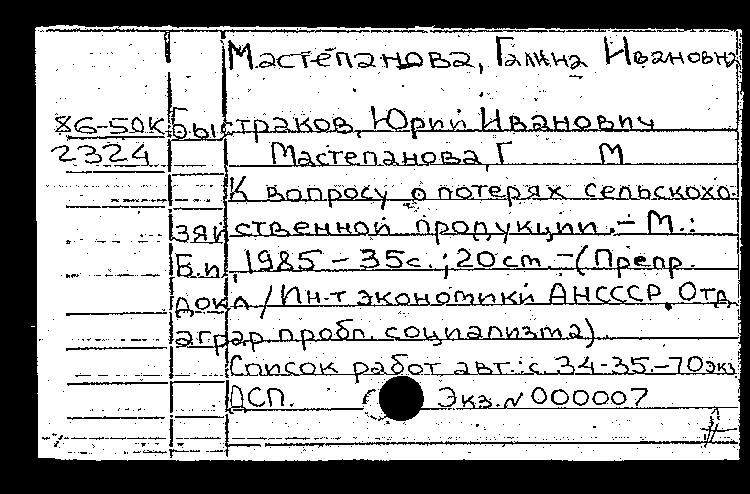 Мастепанова, Галина Ивановна
86-50к Быстраков, Юрий Иванович
2324 Мастепанова, Г М
К вопросу о потерях сельскохо-
зяйственной продукции.- М.:
Б.и, 1985 - 35с.; 20ст. - (Препр.
докл / Ин-т экономики АНСССР, Отд.
аграр. пробл. социализма)
Список работ авт.: с 34-35.-70экз
ДСП. Экз. № 000007